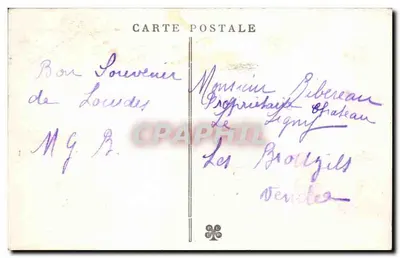 CARTE POSTALE
Bon Souvenir
de Lourdes
M G B.
Monsieur Bebereau
Propriétaire Chateau
Le Ligny
Les Brouzils
Vendée
CPAPHIL